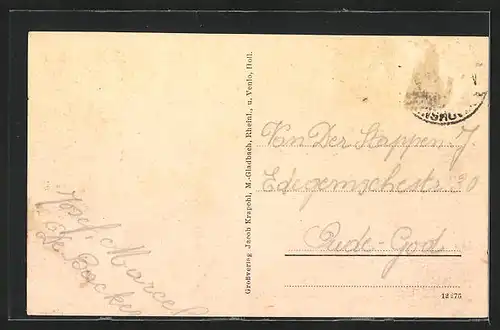 Josef, Marcel
De Backer
Großverlag Jacob Krapohl, M.-Gladbach, Rheinl., u. Venlo, Holl.
Van Der Stappen J.
Edegemschestr 90
Oude-God